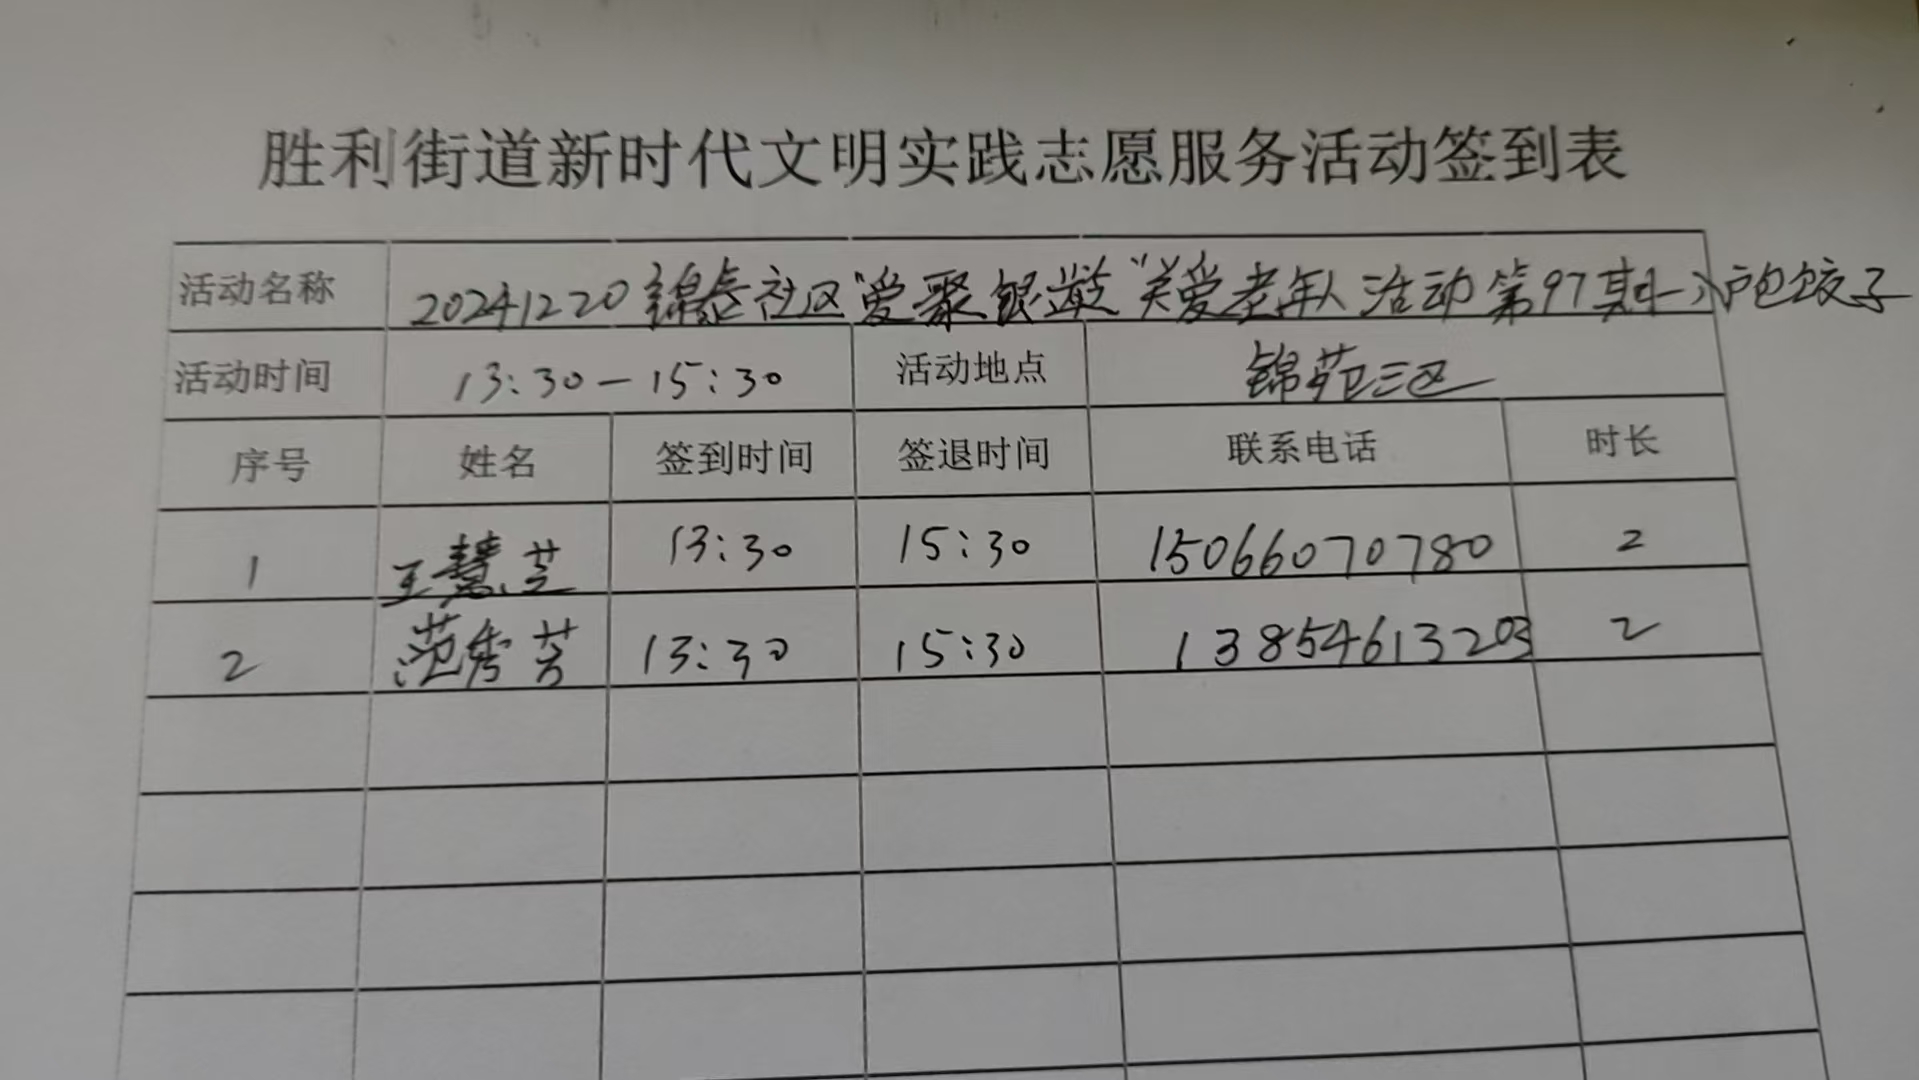 胜利街道新时代文明实践志愿服务活动签到表
活动名称 20241220锦苑社区"爱聚银龄"关爱老年人活动第97期—入户包饺子
活动时间 13:30—15:30 活动地点 锦苑三区
序号 姓名 签到时间 签退时间 联系电话 时长
1 王慧芝 13:30 15:30 15066070780 2
2 范秀芳 13:30 15:30 13854613203 2